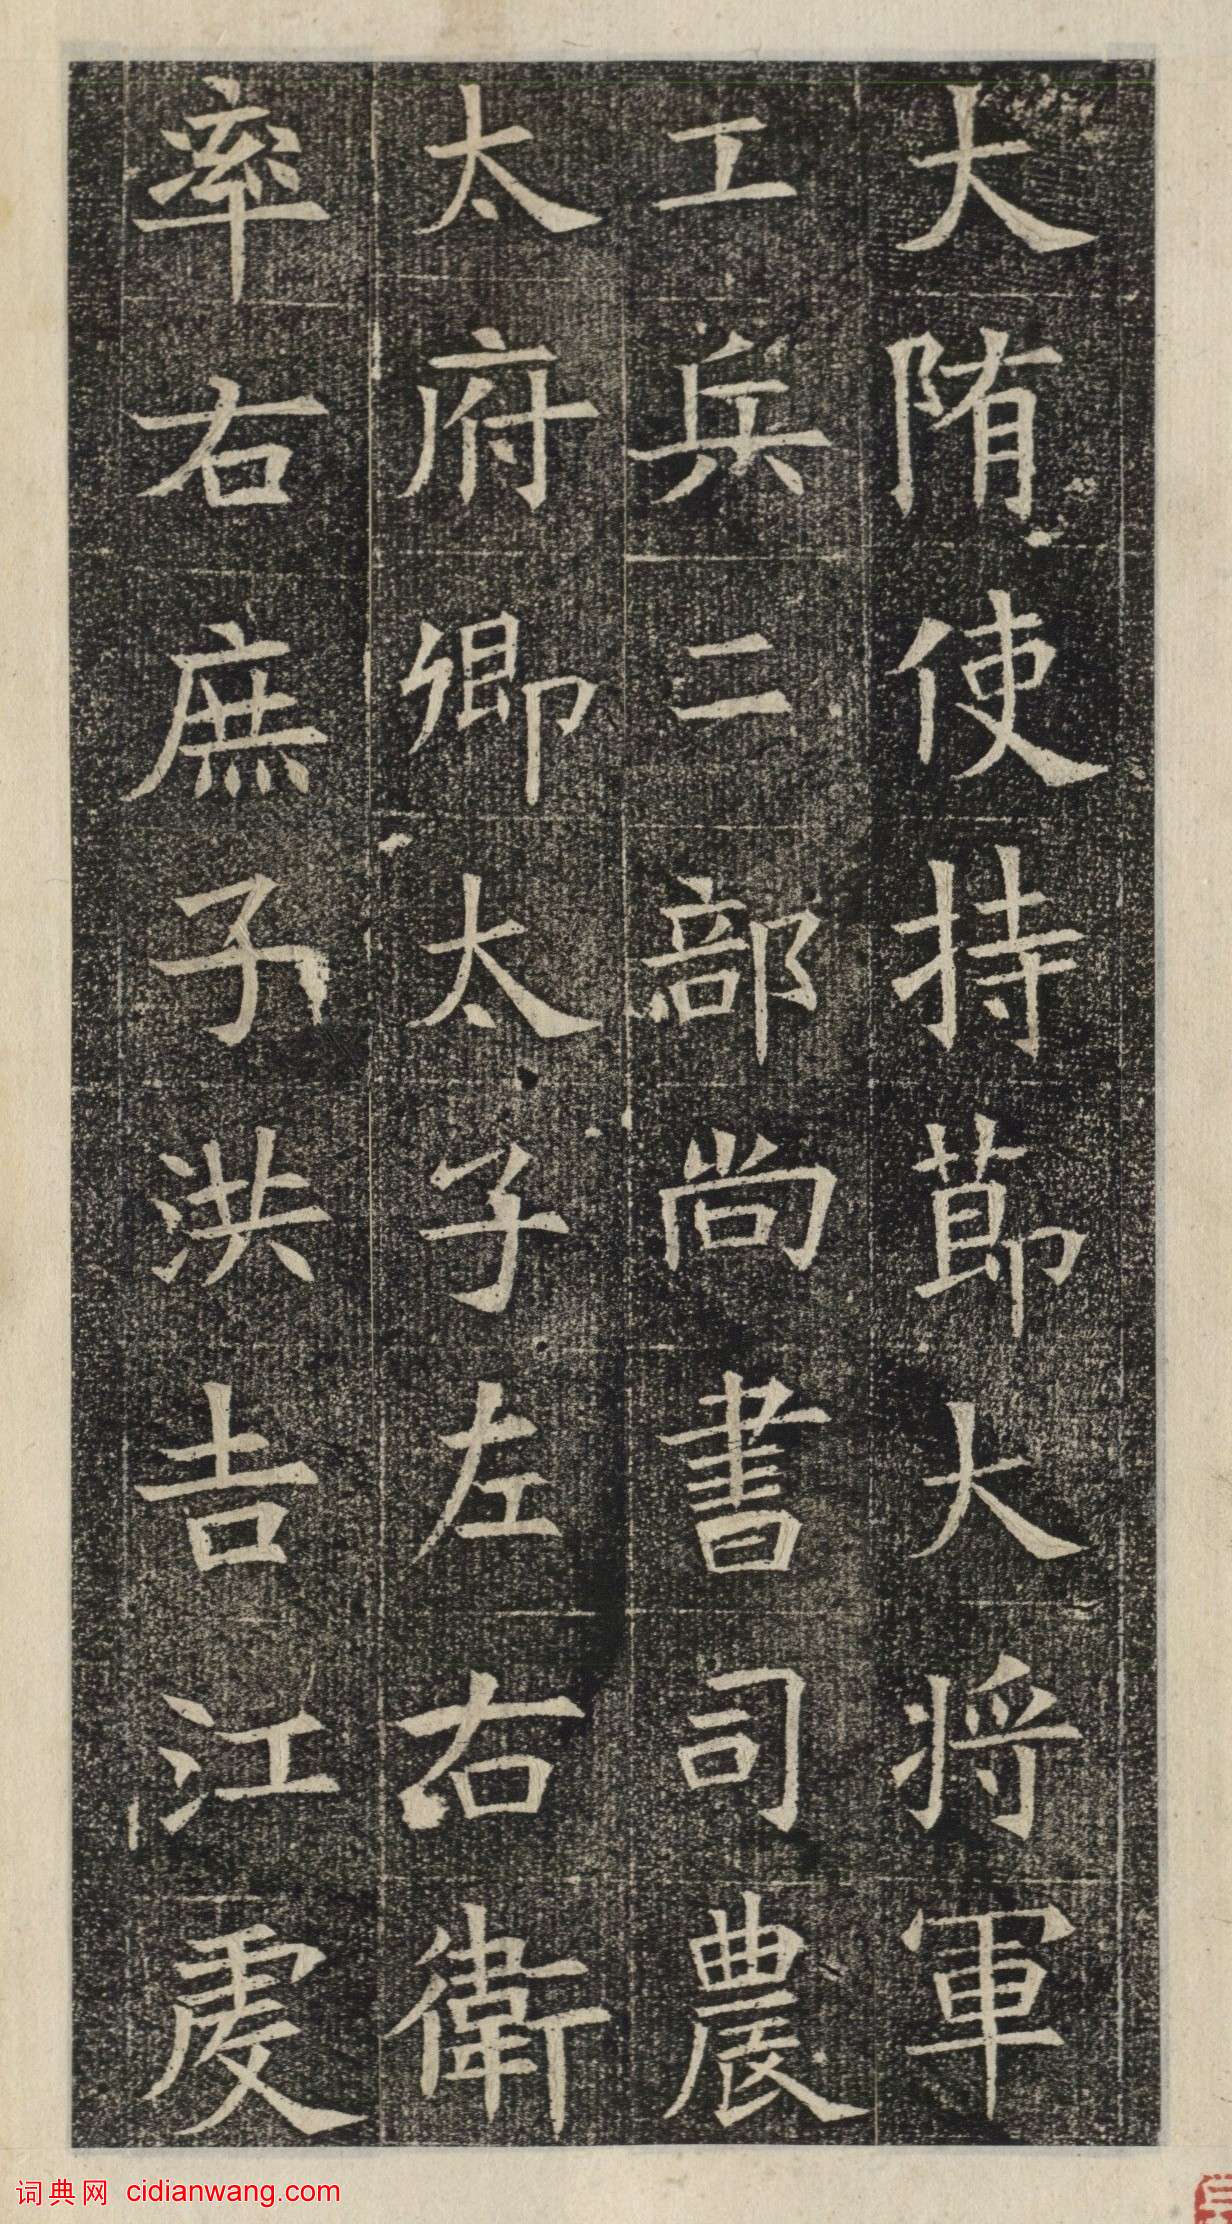 大隋使持節大將軍
工兵二部尚書司農
太府卿太子左右衛
率右庶子洪吉江虔
词典网 cidianwang.com